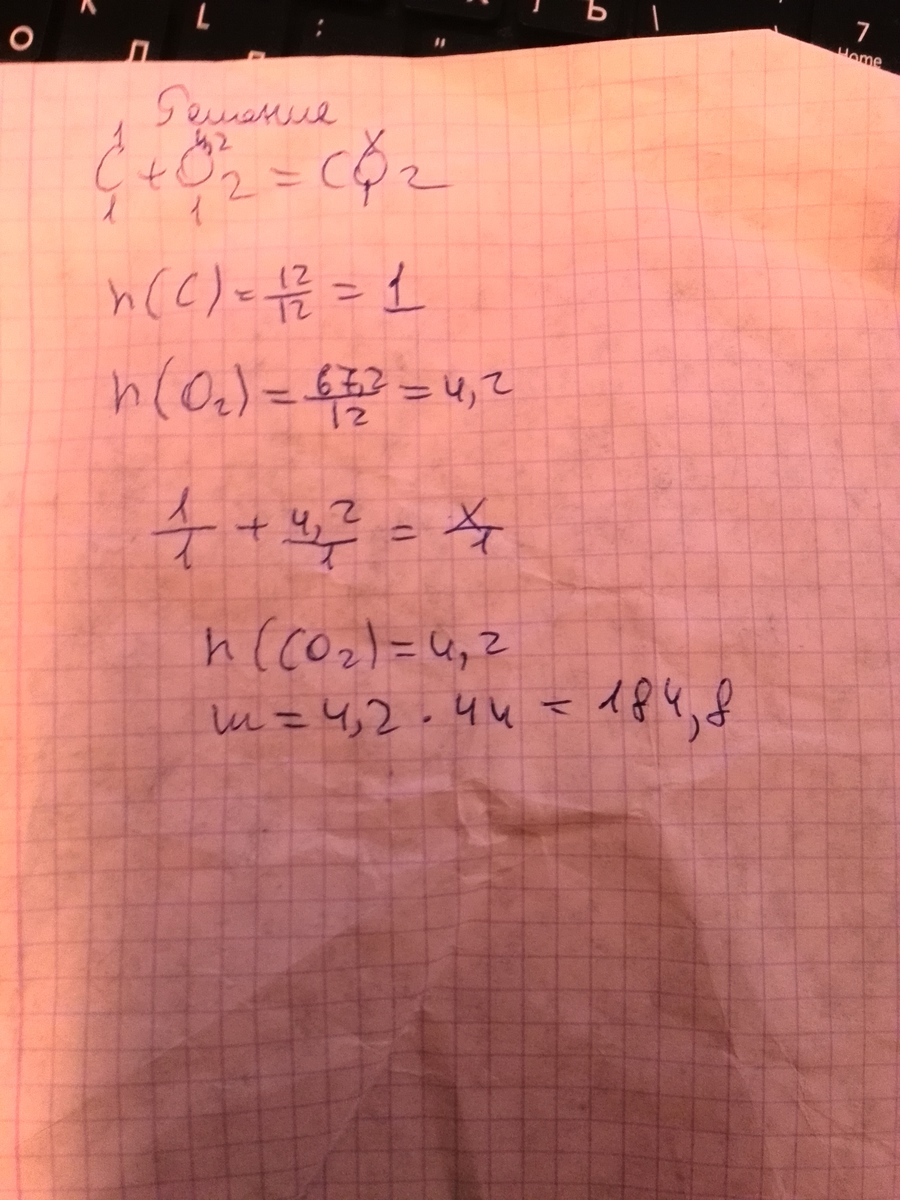 О Л K L : " Ъ | 7
Home
Решение
1 4,2 X
C + O2 = CO2
1 1 1
n(C) = 12/12 = 1
n(O2) = 67,2/12 = 4,2
1/1 + 4,2/1 = X/1
n(CO2) = 4,2
m = 4,2 · 44 = 184,8